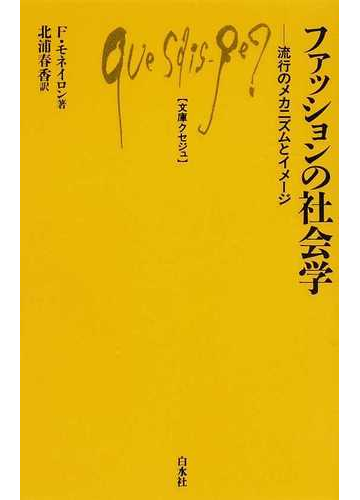 ファッションの社会学
──流行のメカニズムとイメージ
Que sais-je?
【文庫クセジュ】
F・モネイロン著
北浦春香訳
白水社